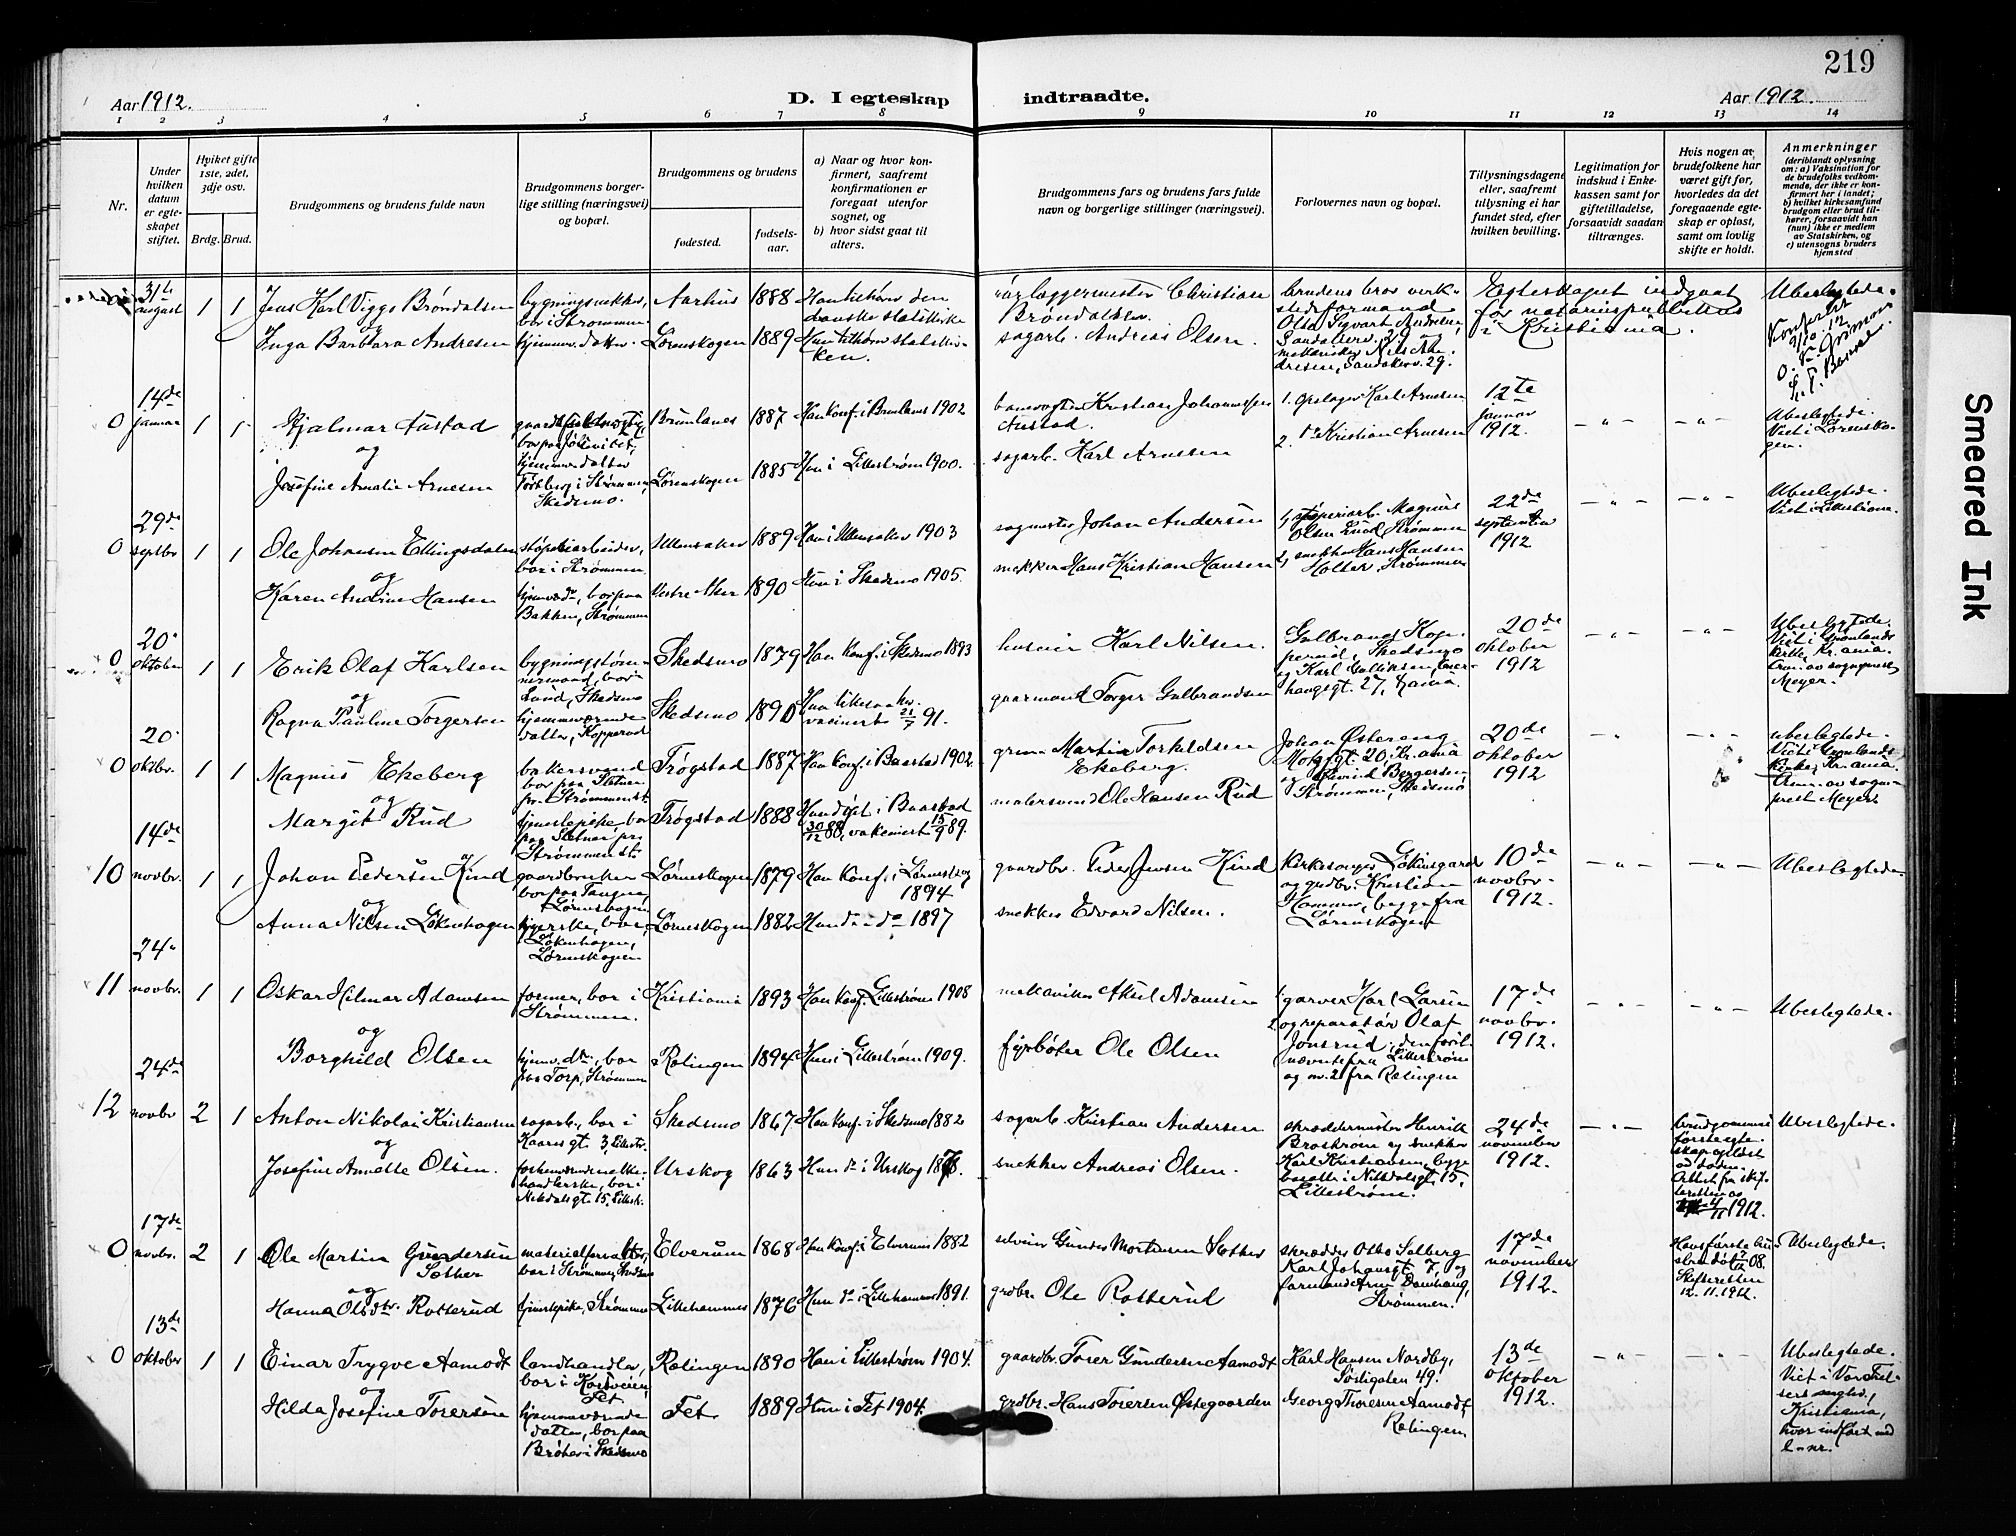 219
Aar 1912.
D. I egteskap indtraadte.
Aar 1912.
1 2 3 4 5 6 7 8 9 10 11 12 13 14
Nr.
Under hvilken datum er egteskapet stiftet.
Hvilket gifte 1ste, 2det, 3dje osv.
Brdg. Brud.
Brudgommens og brudens fulde navn
Brudgommens borgerlige stilling (næringsvei) og bopæl.
Brudgommens og brudens
fødested.
fødselsaar.
a) Naar og hvor konfirmert, saafremt konfirmationen er foregaat utenfor sognet, og
b) hvor sidst gaat til alters.
Brudgommens fars og brudens fars fulde navn og borgerlige stillinger (næringsvei).
Forlovernes navn og bopæl.
Tillysningsdagene eller, saafremt tillysning ei har fundet sted, efter hvilken bevilling.
Legitimation for indskud i Enkekassen samt for giftetilladelse, forsaavidt saadan tiltrænges.
Hvis nogen av brudefolkene har været gift før, hvorledes da det foregaaende egteskap er opløst, samt om lovlig skifte er holdt.
Anmerkninger
(deriblandt oplysning om: a) Vaksination for de brudefolks vedkommende, der ikke er konfirmert her i landet; b) hvilket kirkesamfund brudgom eller brud tilhører, forsaavidt han (hun) ikke er medlem av Statskirken, og c) utensogns bruders hjemsted
31te august 1 1 Jens Karl Viggo Brøndalsen
og
Inga Barbara Andresen
bygningssnekker, bor i Strømmen
hjemmev. datter
Aarhus 1888 Han tilhører den danske statskirke
Lørenskogen 1889 Hun tilhører statskirken.
rørlæggermester Christian Brøndalsen
sagarb. Andreas Olsen.
brudens bror verkstedformand Olaf Sigvart Andresen, Sandakerv. 29 og mekaniker Nils Andresen, Sandakerv. 29.
Egteskapet indgaat for notarius publicus i Kristiania.
Ubeslegtede.
14de
0 januar 1 1 Hjalmar Austad
og
Josefine Amalie Arnesen
Brunlanes 1887 Han konf. i Brunlanes 1902
hjemmev. datter
Skedsmo.
Lørenskogen 1885 Hun i Lillestrøm 1900.
banevogter Kristian Johannessen Austad.
sagarb. Karl Arnesen
1. Karl Arnesen
2. do Kristian Arnesen
12te januar 1912.
- " - - " -
Ubeslegtede.
Viet i Lørenskogen.
29de
0 septbr 1 1 Ole Johansen Ellingsdalen
og
Karen Andrine Hansen
støperiarbeider, bor i Strømmen
hjemv. dr, bor paa Bakken, Strømmen
Ullensaker 1889 Han i Ullensaker 1903
Vestre Aker 1890 Hun i Skedsmo 1905.
sagmester Johan Andersen
snekker Hans Kristian Hansen
1, støperiarb. Magnus Olsen Lund, Strømmen
2, snekker Hans Hansen Holter, Strømmen
22de september 1912
- " - - " -
Ubeslegtede.
Viet i Lillestrøm.
20.
0 oktober 1 1 Erik Olaf Karlsen
og
Ragna Pauline Torgersen
bygningstømmermand, bor Lund, Skedsmo
hjemmeværende datter, Kopperud
Skedsmo 1879 Han konf. i Skedsmo 1893
Skedsmo 1890 Hun likesaa
vaksinert 21/7 91.
huseier Karl Nilsen.
gaarmand Torger Gulbrandsen
Gulbrand Kopperud, Skedsmo
og Karl 27, Kr.ania.
20de oktober 1912
- " - - " -
Ubeslegtede.
Viet i Grønlands kirke, Kr.ania. av sogneprest Meyer.
20.
0 oktbr. 1 1 Magnus Ekeberg
og
Margit Rud
bakersvend bor paa Sletner pr. Strømmen st.
tjenestepike, bor paa Sletner pr. Strømmen st.
Trøgstad 1887 Han konf. i Baastad 1902.
Trøgstad 1888 Hun døpt i Baastad 30/12 88, vaksinert 15/9 89.
Martin Torkildsen Ekeberg.
malersvend Ole Hansen Rud
Johan Østereng, Motzfgt 20, Kr.ania
og Bergersen, Strømmen, Skedsmo
20de oktober 1912
- " -
ubeslegtede.
Viet i Grønlands kirke, Kr.ania. av sogneprest Meyer.
14de
10 novbr. 1 1 Johan Pedersen Kind
og
Anna Nilsen Løkenhagen
gaardbruker bor paa Tangen Lørenskogen
syerske, bor Løkenhagen, Lørenskogen
Lørenskogen 1879 Han konf. i Lørenskog 1894
Lørenskogen 1882 Hun do - do 1897
gaardbr. Peder Jensen Kind
snekker Edvard Nilsen.
kirkesanger Løkensgard
og grdbr. Kristian Hammer, begge fra Lørenskogen
10de novbr. 1912.
- " - - " -
Ubeslegtede
24de
11 novbr. 1 1 Oskar Hilmar Adamsen
og
Borghild Olsen
former, bor i Strømmen.
hjemv. dr., bor paa Torp, Strømmen
Kristiania 1893 Han konf. Lillestrøm 1908
Rælingen 1894 Hun i Lillestrøm 1909.
mekaniker Aksel Adamsen
fyrbøter Ole Olsen
1. garver Karl Larsen
2. og reparatør Olaf Jonsrud, den førstnævnte fra Lillestrøm og nr. 2 fra Rælingen
17de novbr. 1912.
- " - - " -
Ubeslegtede.
24de
12 novbr 2 1 Anton Nikolai Kristiansen
og
Josefine Annette Olsen.
sagarb., bor i Kaaresgt 3, Lillestr.
handlerske, bor i Nitedalsgt 15, Lillestr.
Skedsmo 1867 Han konf. i Skedsmo 1882
Urskog 1863 Hun do i Urskog
sagarb. Kristian Andersen
snekker Andreas Olsen.
skræddermester Henrik Broström og snekker Karl Kristiansen, begge bosatte i Nitedalsgt. 15, Lillestrøm.
24de november 1912.
- " -
brudgommens første egteskap opløst ved døden. Attest fra skifteretten av 1912.
Ubeslegtede.
17de
0 novbr. 2 1 Ole Martin Gundersen Sæther
og
Hanna Olsdtr. Rotterud
materialforvalter, bor i Strømmen, Skedsmo
tjenestepike, Strømmen
Elverum 1868 Han konf. i Elverum 1882
Lillehammer 1876 Hun do i Lillehammer 1891.
selveier Gunder Mortensen Sæther
grdbr. Ole Rotterud
skrædder Otto Solberg Karl Johansgt 7, og formand Arne Damhaug, Strømmen.
17de november 1912.
Hans første hustru død 08. Skifteretten 12.11.1912.
Ubeslegtede.
13de
0 oktober 1 1 Einar Trygve Aamodt
og
Hilda Josefine Torersen
landhandler, bor i Fet
hjemmeværende datter, bor paa Bråten i Skedsmo
Rælingen 1890 Han i Lillestrøm 1904.
Fet 1889 Hun i Fet 1904.
gaardbr. Torer Gundersen Aamodt
grdbr. Hans Torersen Østegaarden
Karl Hansen Nordby, 49.
Georg Thoresen Aamodt, Rælingen
13de oktober 1912.
- " - - " -
Ubeslegtede.
Viet i Vor Frelsers menighet, Kristiania, hvor indført med l-nr.
Smeared Ink